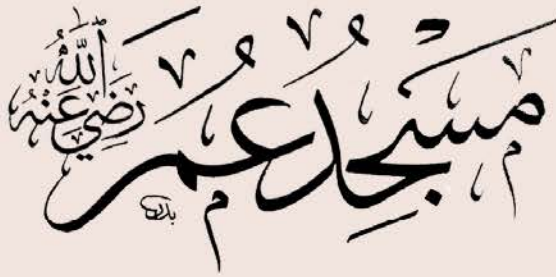 مَسْجِدُ عُمَر
رَضِيَ اللّٰهُ عَنْهُ